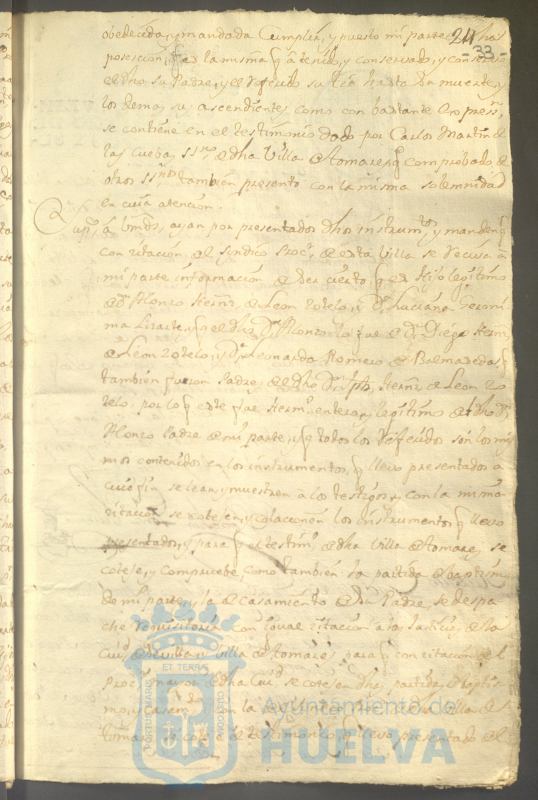 24
33
obedecida, y mandada Cumplir, y puesto mi parte en dha
posesion, es la misma q a tenido, y conservado, y conserva
el dho su Padre, y el referido su tio hasta su muerte, y
los demas sus ascendientes como con bastante expresn
se contiene en el testimonio dado por Carlos Martin de
las Cuebas ssno de dha Villa de tomares, q comprobado de
otros ssnos tambien presento con la misma solemnidad
en cuia atencion.
Supco a Vmds, ayan por presentados dhos instrumtos y manden q
con citacion, del sindico Procr de esta Villa se reciva a
mi parte informacion de ser cierto q es hijo legitimo
de Dn Alonzo Herns de Leon Zotelo, y Da Luciana Geroni
ma Lizarte, y q el dho Dn Alonzo lo fue de Dn Diego Hern
de Leon Zotelo, y Da Leonarda Romero de Balmaseda, q
tambien fueron Padres de el dho Dn Jph, Herns de Leon Zo
telo, por lo q este fue hermo entero, y legitimo de dho Dn
Alonzo Padre de mi parte, y q todos los referidos son los mis
mos contenidos en los instrumentos, q llevo presentados a
cuio fin se lean, y muestren a los testigos, y con la misma
citacion se cotejen, y los instrumentos q llevo
presentados, y para q el testimo de dha Villa de tomares se
coteje, y compruebe, como tambien la partida de baptismo
de mi parte, y la de casamiento de su Padre, se despa
che requisitoria con igual citacion a las Justicias de la
Ciud de Sevilla y Villa de tomares para q con citacion de el
Procr mayor de dha Ciud se cotejen dhas partidas de bapti
mo, y casamto con la
tomares se coteje el testimonio q llevo presentado el
PORTUS MARIS
ET TERRAE
CUSTODIA
Ayuntamiento de
HUELVA